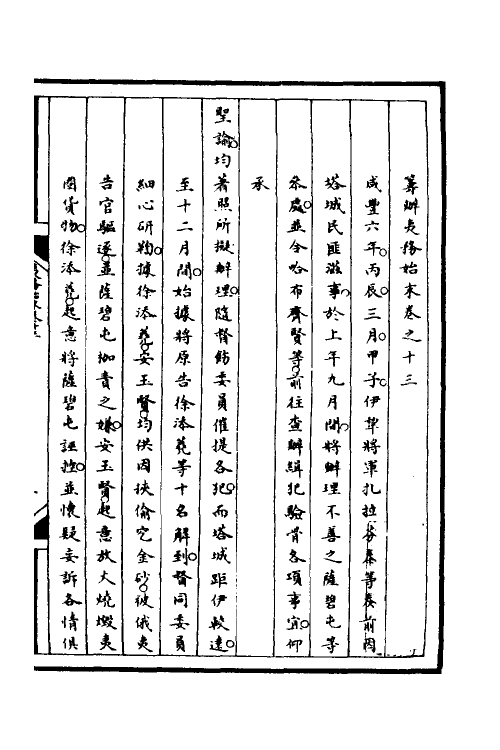 籌辦夷務始末卷之十三
咸豐六年丙辰三月甲子伊犂將軍扎拉芬泰等奏前因
塔城民匪滋事於上年九月間將辦理不善之薩碧屯等
叅處並令哈布齊賢等前往查辦緝犯驗骨各項事宜仰
承
聖諭均著照所擬辦理隨督飭委員催提各犯而塔城距伊較遠
至十二月間始據將原告徐添蕘等十名解到督同委員
細心研鞫據徐添蕘安玉賢均供因挾偷挖金砂被俄夷
告官驅逐並薩碧屯枷責之嫌安玉賢起意放火燒燬夷
圈貨物徐添蕘起意將薩碧屯誣控並懷疑妄訴各情俱